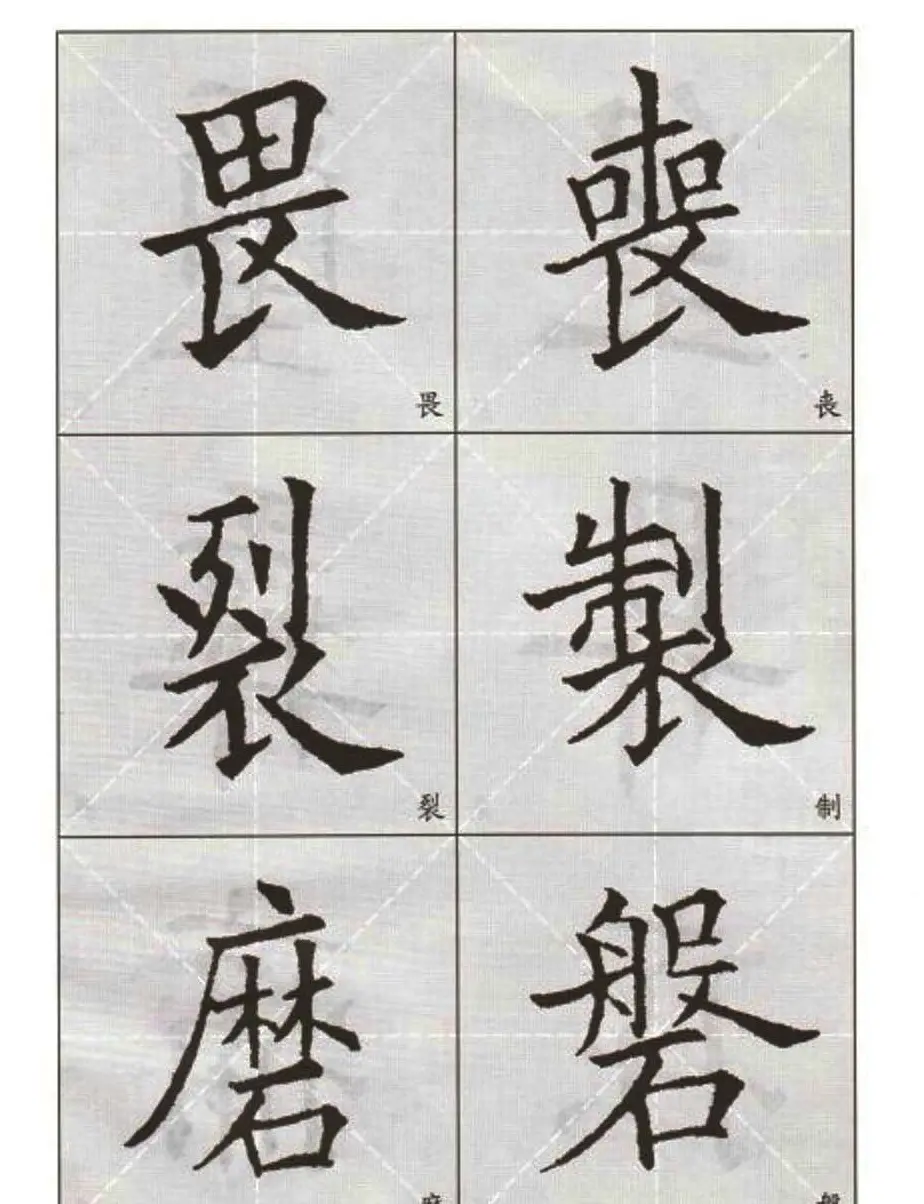 畏 喪
畏 丧
裂 製
裂 制
磨 磐